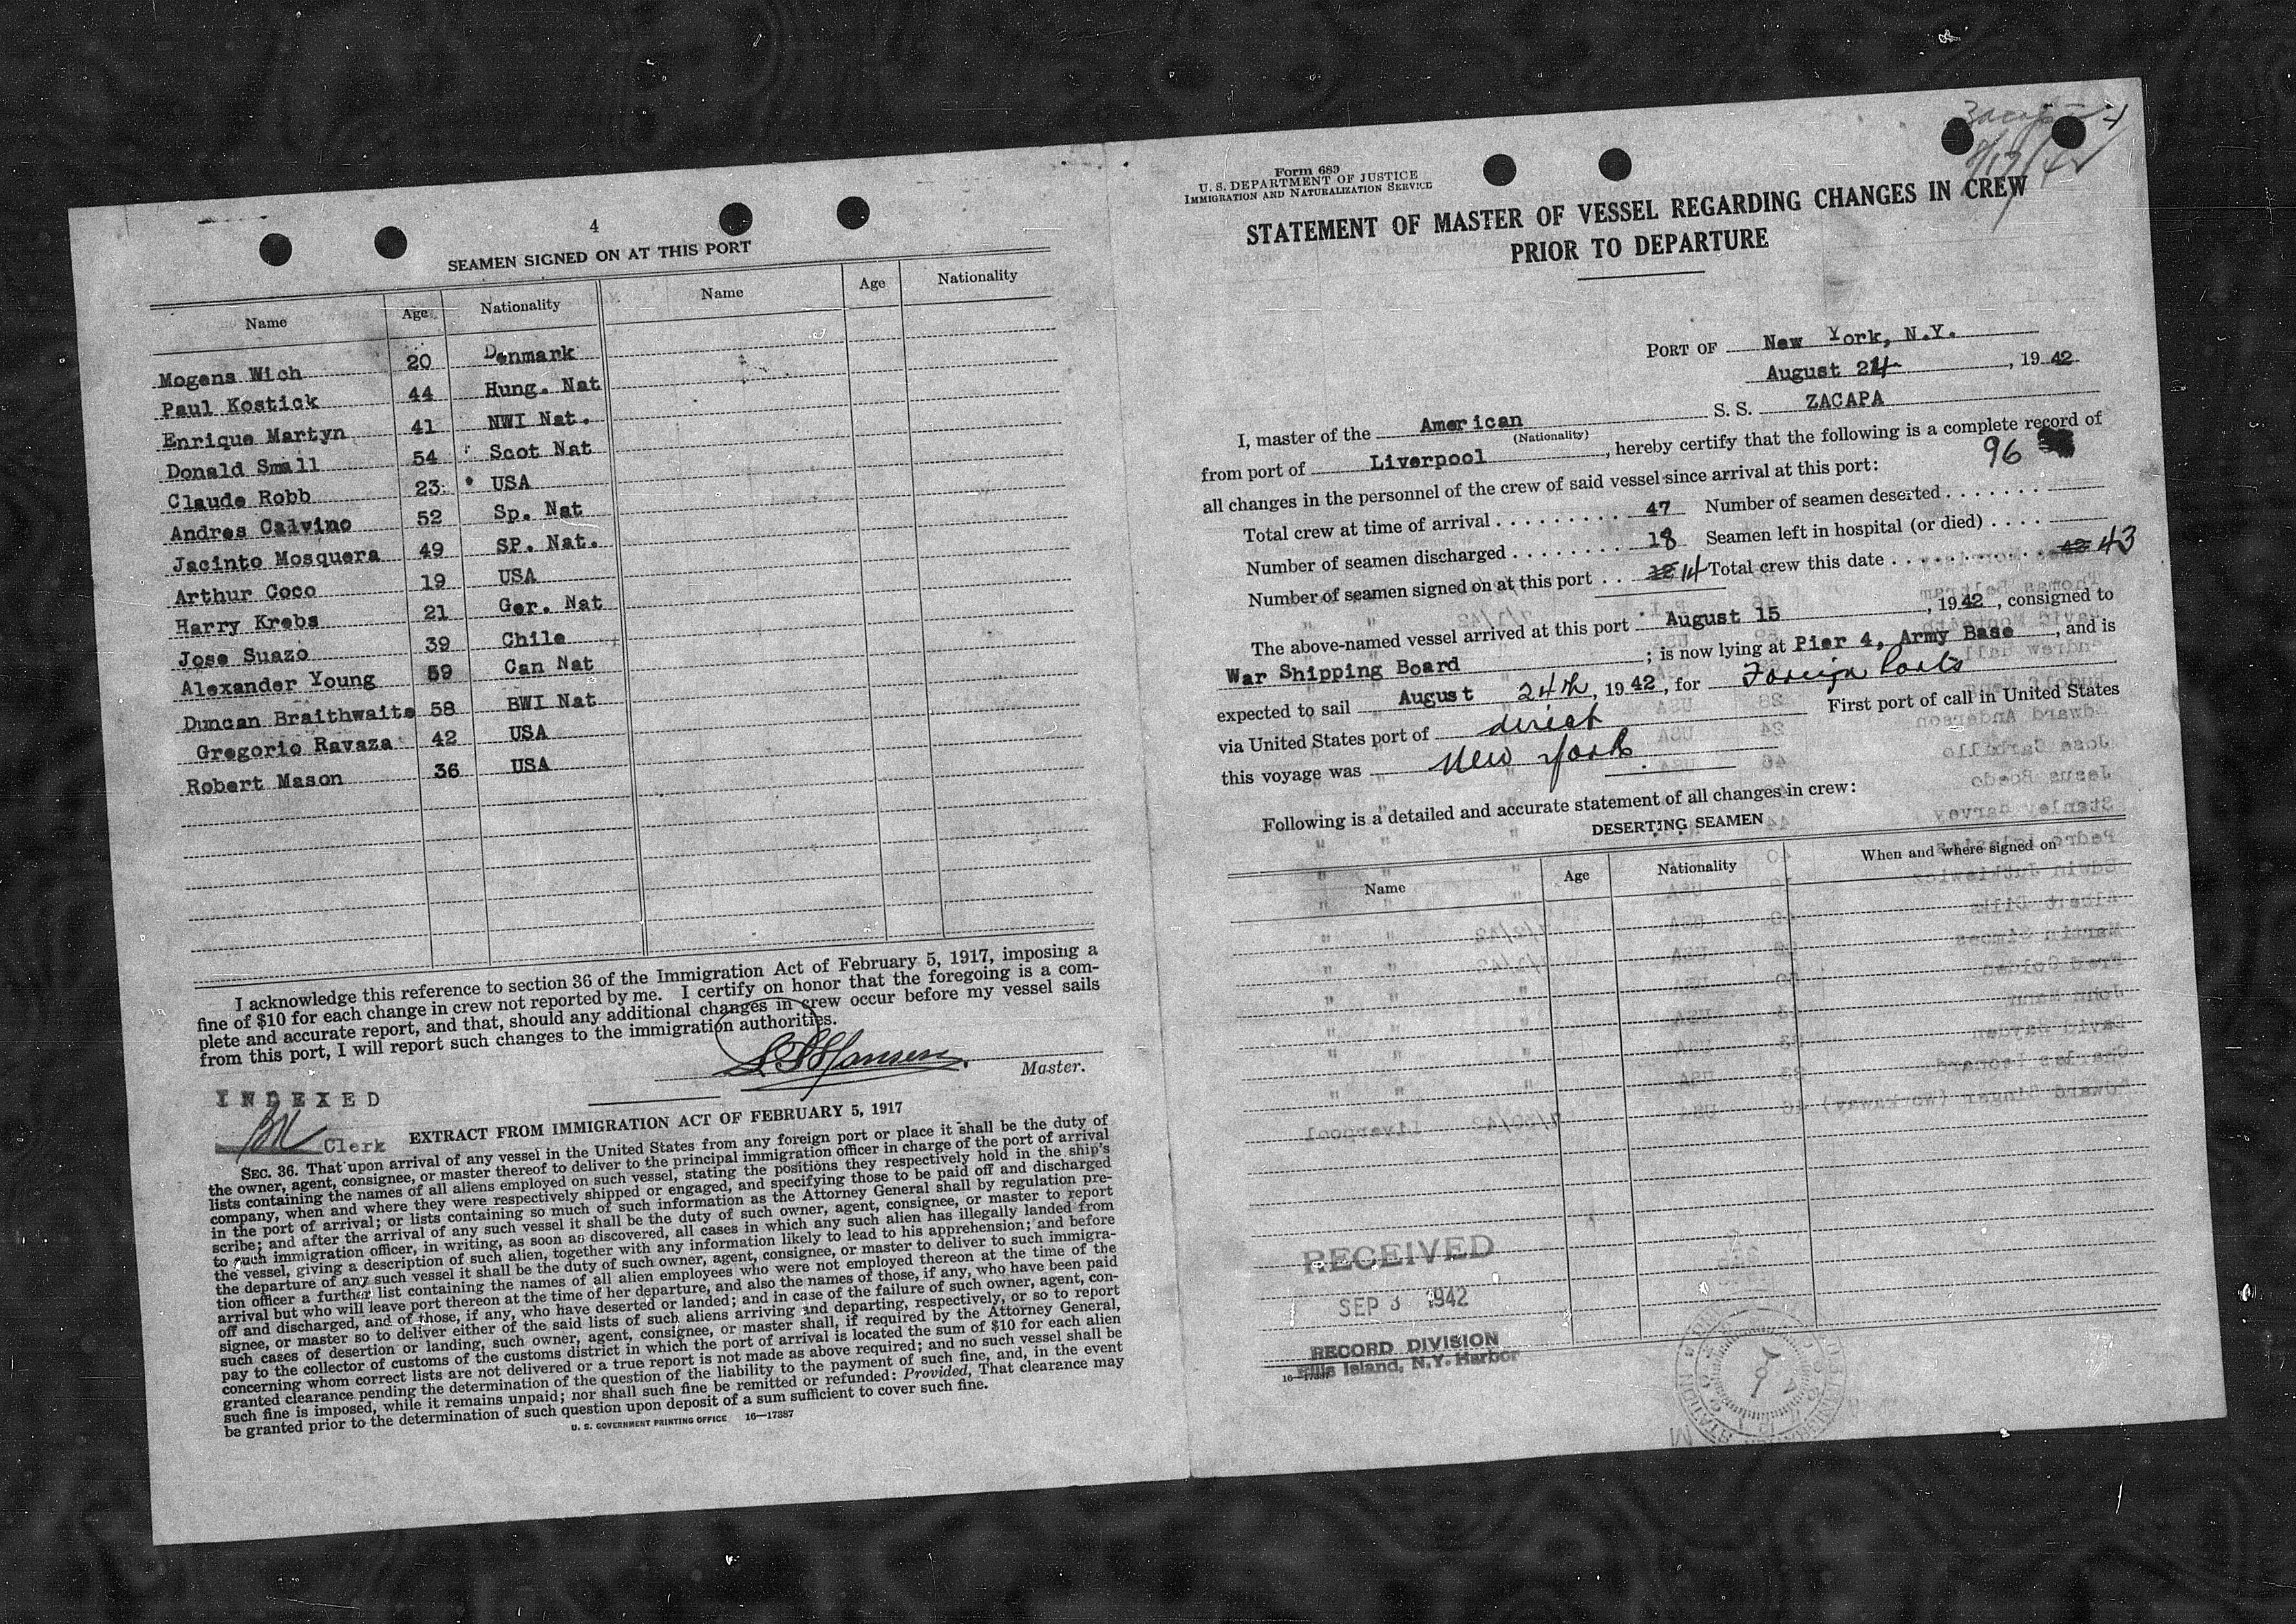 4
SEAMEN SIGNED ON AT THIS PORT
Name Age Nationality Name Age Nationality
Mogens Wich 20 Denmark
Paul Kostick 44 Hung. Nat
Enrique Martyn 41 NWI Nat.
Donald Small 54 Scot Nat
Claude Robb 23 USA
Andres Calvino 52 Sp. Nat
Jacinto Mosquera 49 SP. Nat.
Arthur Coco 19 USA
Harry Krebs 21 Ger. Nat
Jose Suazo 39 Chile
Alexander Young 59 Can Nat
Duncan Braithwaite 58 BWI Nat
Gregorio Ravaza 42 USA
Robert Mason 36 USA
I acknowledge this reference to section 36 of the Immigration Act of February 5, 1917, imposing a
fine of $10 for each change in crew not reported by me. I certify on honor that the foregoing is a com-
plete and accurate report, and that, should any additional changes in crew occur before my vessel sails
from this port, I will report such changes to the immigration authorities.
Hansen
Master.
INDEXED
Clerk
EXTRACT FROM IMMIGRATION ACT OF FEBRUARY 5, 1917
SEC. 36. That upon arrival of any vessel in the United States from any foreign port or place it shall be the duty of
the owner, agent, consignee, or master thereof to deliver to the principal immigration officer in charge of the port of arrival
lists containing the names of all aliens employed on such vessel, stating the positions they respectively hold in the ship's
company, when and where they were respectively shipped or engaged, and specifying those to be paid off and discharged
in the port of arrival; or lists containing so much of such information as the Attorney General shall by regulation pre-
scribe; and after the arrival of any such vessel it shall be the duty of such owner, agent, consignee, or master to report
to such immigration officer, in writing, as soon as discovered, all cases in which any such alien has illegally landed from
the vessel, giving a description of such alien, together with any information likely to lead to his apprehension; and before
the departure of any such vessel it shall be the duty of such owner, agent, consignee, or master to deliver to such immigra-
tion officer a further list containing the names of all alien employees who were not employed thereon at the time of the
arrival but who will leave port thereon at the time of her departure, and also the names of those, if any, who have been paid
off and discharged, and of those, if any, who have deserted or landed; and in case of the failure of such owner, agent, con-
signee, or master so to deliver either of the said lists of such aliens arriving and departing, respectively, or so to report
such cases of desertion or landing, such owner, agent, consignee, or master shall, if required by the Attorney General,
pay to the collector of customs of the customs district in which the port of arrival is located the sum of $10 for each alien
concerning whom correct lists are not delivered or a true report is not made as above required; and no such vessel shall be
granted clearance pending the determination of the question of the liability to the payment of such fine, and, in the event
such fine is imposed, while it remains unpaid; nor shall such fine be remitted or refunded: Provided, That clearance may
be granted prior to the determination of such question upon deposit of a sum sufficient to cover such fine.
U. S. GOVERNMENT PRINTING OFFICE 16—17387
Form 689
U. S. DEPARTMENT OF JUSTICE
IMMIGRATION AND NATURALIZATION SERVICE
STATEMENT OF MASTER OF VESSEL REGARDING CHANGES IN CREW
PRIOR TO DEPARTURE
PORT OF New York, N.Y.
August 24, 1942
I, master of the American S. S. ZACAPA
(Nationality)
from port of Liverpool, hereby certify that the following is a complete record of
all changes in the personnel of the crew of said vessel since arrival at this port:
96
Total crew at time of arrival 47 Number of seamen deserted
Number of seamen discharged 18 Seamen left in hospital (or died)
Number of seamen signed on at this port 14 Total crew this date 42 43
The above-named vessel arrived at this port August 15, 1942, consigned to
War Shipping Board; is now lying at Pier 4, Army Base, and is
expected to sail August 24th, 1942, for Foreign Ports
via United States port of direct First port of call in United States
this voyage was New York
Following is a detailed and accurate statement of all changes in crew:
DESERTING SEAMEN
Name Age Nationality When and where signed on
RECEIVED
SEP 3 1942
RECORD DIVISION
Ellis Island, N.Y. Harbor
16—17387